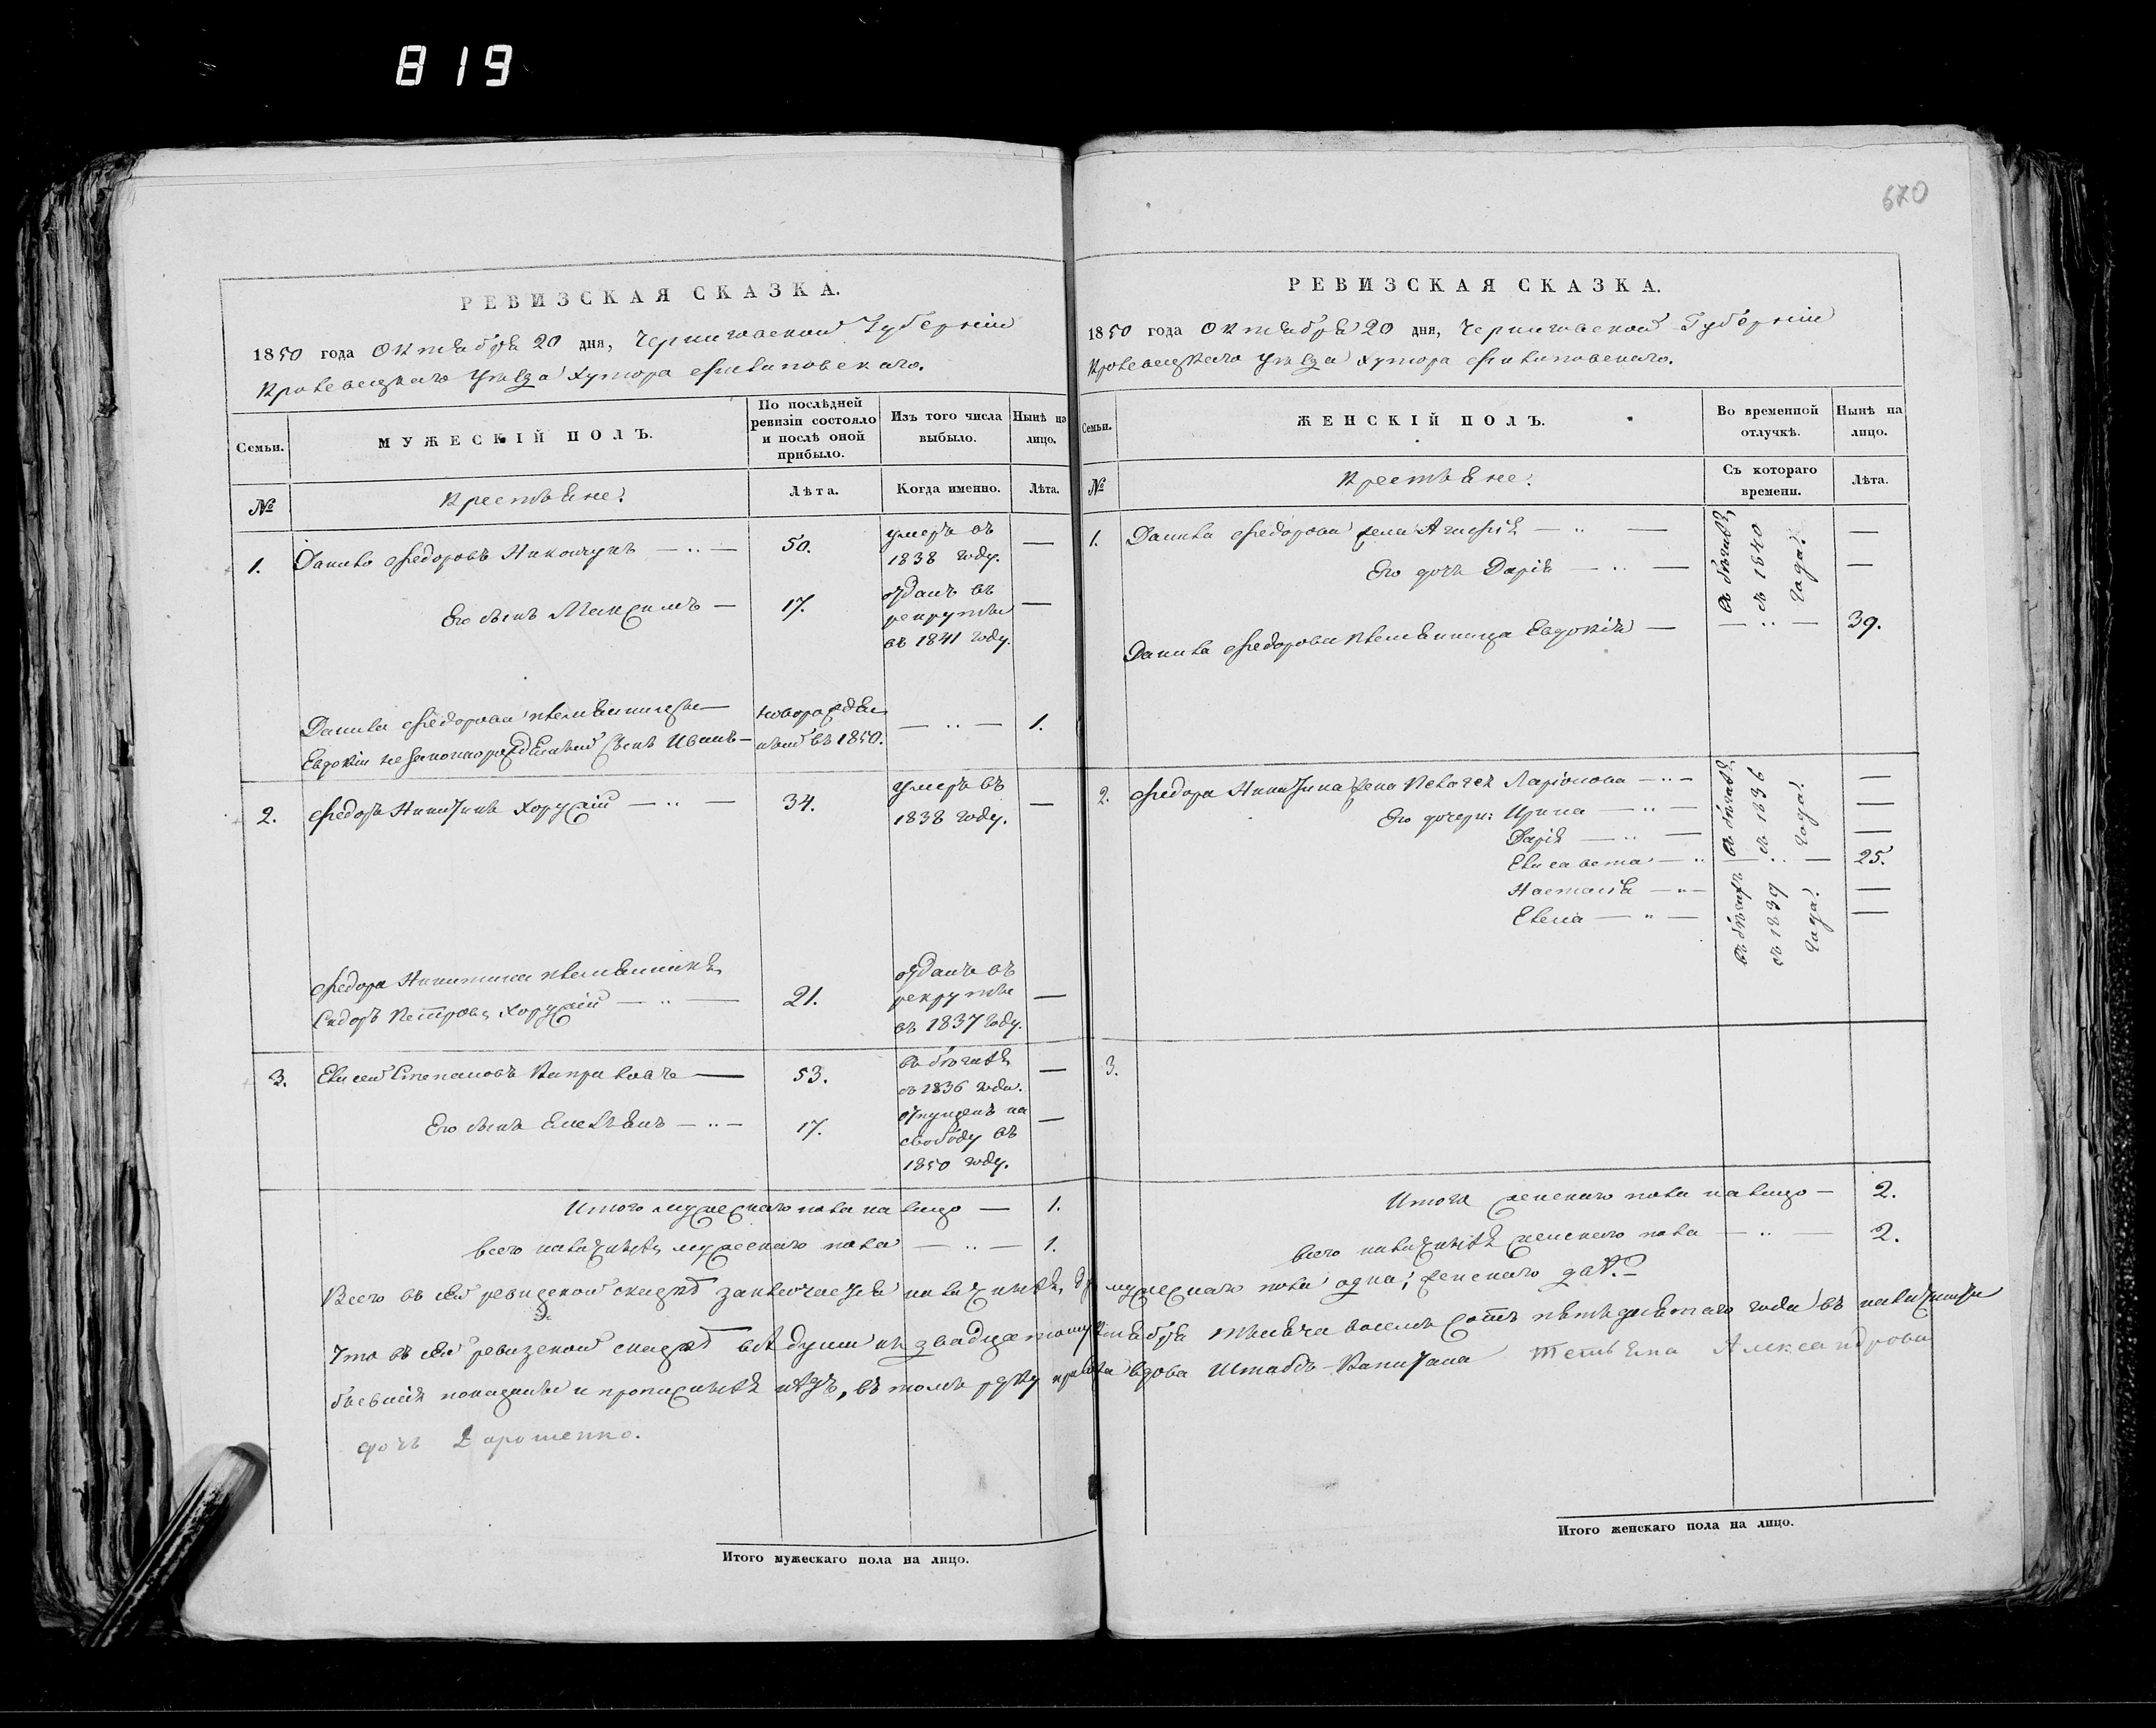 819
670
РЕВИЗСКАЯ СКАЗКА.
1850 года Октября 20 дня, Черниговской Губерніи
Кролевецкаго уѣзда хутора Филиповскаго.
Семьи.
МУЖЕСКІЙ ПОЛЪ.
По послѣдней
ревизіи состояло
и послѣ оной
прибыло.
Изъ того числа
выбыло.
Нынѣ на
лицо.
№
Крестьяне:
Лѣта.
Когда именно.
Лѣта.
1. Данило Федоровъ 50. умеръ въ
1838 году. —
Его сынъ Максимъ — 17. отданъ въ
рекруты
въ 1841 году. —
Данила Федорова племянницы — новорожден-
Евдокіи незаконнорожденный сынъ Иванъ — ный въ 1850. — „ — 1.
2. Федоръ Никитинъ Хоружій — „ — 34. умеръ въ
1838 году. —
Федора Никитина племянникъ
Сидоръ Петровъ Хоружій — „ — 21. отданъ въ
рекруты
въ 1837 году. —
3. Елисей Степановъ — 53. въ бѣгахъ
съ 1836 года. —
Его сынъ Емельянъ — „ — 17. отпущенъ на
свободу въ
1850 году. —
Итого мужескаго пола на лицо — 1.
Всего наличныхъ мужескаго пола — „ — 1.
РЕВИЗСКАЯ СКАЗКА.
1850 года Октября 20 дня, Черниговской Губерніи
Кролевецкаго уѣзда хутора Филиповскаго.
Семьи.
ЖЕНСКІЙ ПОЛЪ.
Во временной
отлучкѣ.
Нынѣ на
лицо.
№
Крестьяне:
Съ котораго
времени.
Лѣта.
1. Данила Федорова жена Агафія — „ — —
Его дочь Дарія — „ — —
въ бѣгахъ
съ 1840
года.
Данила Федорова племянница Евдокія — — „ — 39.
2. Федора Никитина жена Пелагея Ларіонова — „ — —
Его дочери: Ирина — „ — —
Дарія — „ — —
въ бѣгахъ
съ 1836
года.
Елисавета — „ — „ — 25.
Настасія — „ — —
Елена — „ — —
въ бѣгахъ
съ 1839
года.
3.
Итого женскаго пола на лицо — 2.
Всего наличныхъ женскаго пола — „ — 2.
Всего въ сей ревизской сказкѣ заключается наличныхъ мужескаго пола одна, женскаго двѣ.
Что въ сей ревизской сказкѣ всѣ души къ двадцатому Октября тысяча восемь сотъ пятьдесятаго года въ наличности
бывшія показаны и прописныхъ нѣтъ, въ томъ руку вдова Штабсъ-Капитана Татьяна Александрова
дочь Дорошенко.
Итого мужескаго пола на лицо.
Итого женскаго пола на лицо.